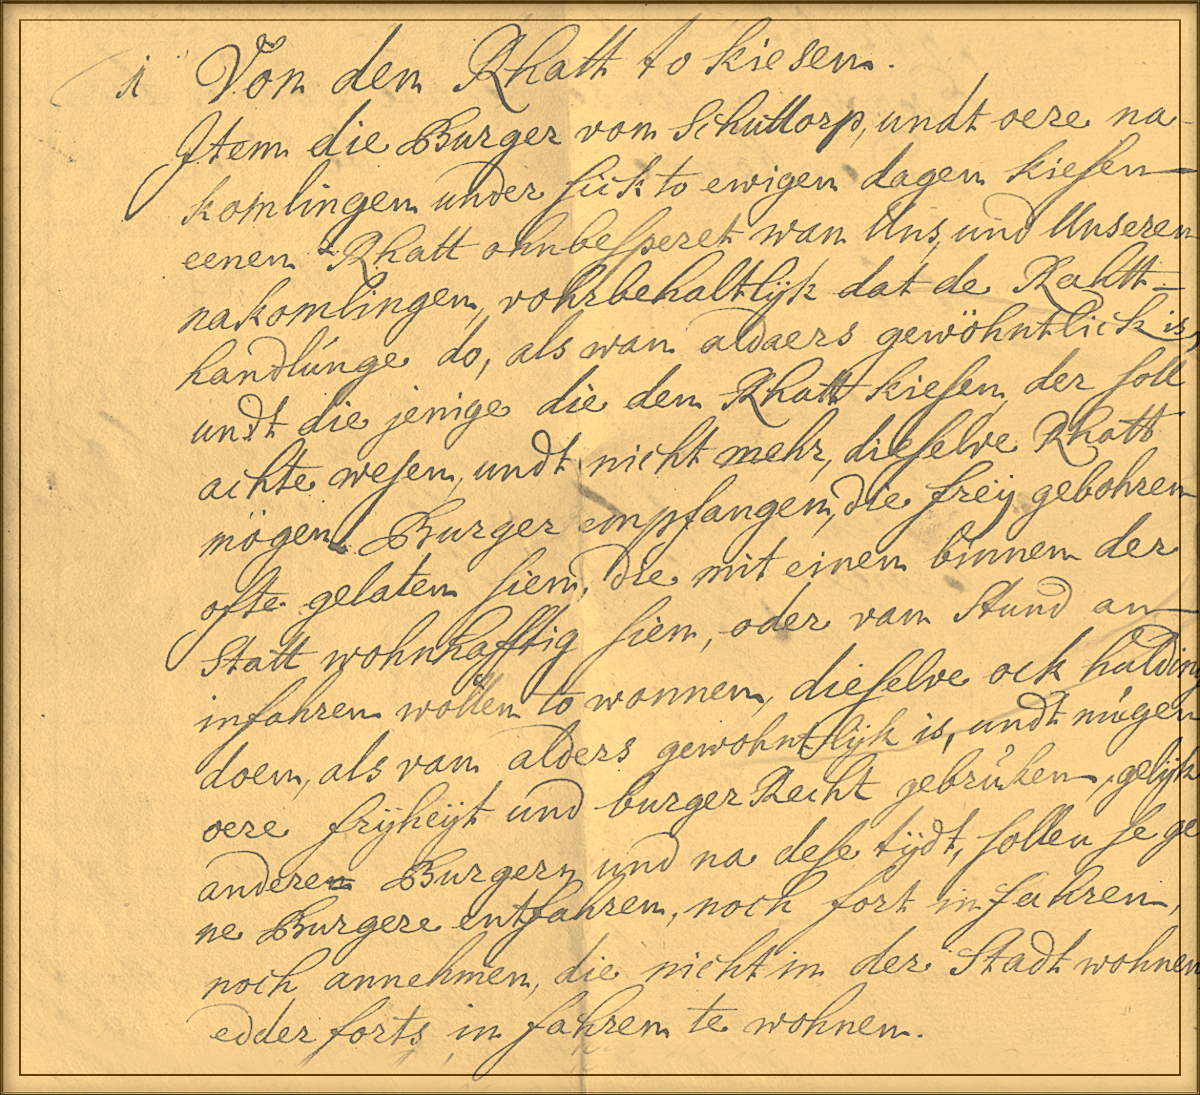 1 Von den Rhatt to kiesen.
Item die Burger von Schuttorp, undt oere na-
komlingen under sick to ewigen dagen kiesen
eenen Rhatt ohnbesperet wan Uns, und Unseren
nakomlingen, vohrbehaltlijk dat de Rahtt-
handlúnge do, als wan aldaers gewöhntlick is,
undt die jenige die den Rhatt kiesen, der soll
achte wesen, undt nicht mehr, dieselve Rhatt
mögen Burger empfangen, die freij gebohren
ofte gelaten sien, die mit einen binnen der
Statt wohnhafftig sien, oder van Stund an
infahren wollen to wonnen, dieselve ock hulding
doen, als van alders gewohntlijk is, undt múgen
oere frijheijt und burger Recht gebrúken, gelijk
anderen Burgern und na dese tijdt, sollen se ge
ne Burgere entfahren, noch fort in fahren,
noch annehmen, die nicht in der Stadt wohnen
edder forts in fahren te wohnen.